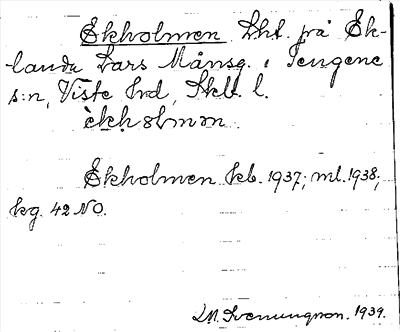 Ekholmen Lht. på Ek-
landa Lars Månsg. i Tengene
s:n, Viste hrd, Skbl. l.
èkhɔlmən
Ekholmen kb. 1937; ml. 1938;
kg. 42 NO.
1939.